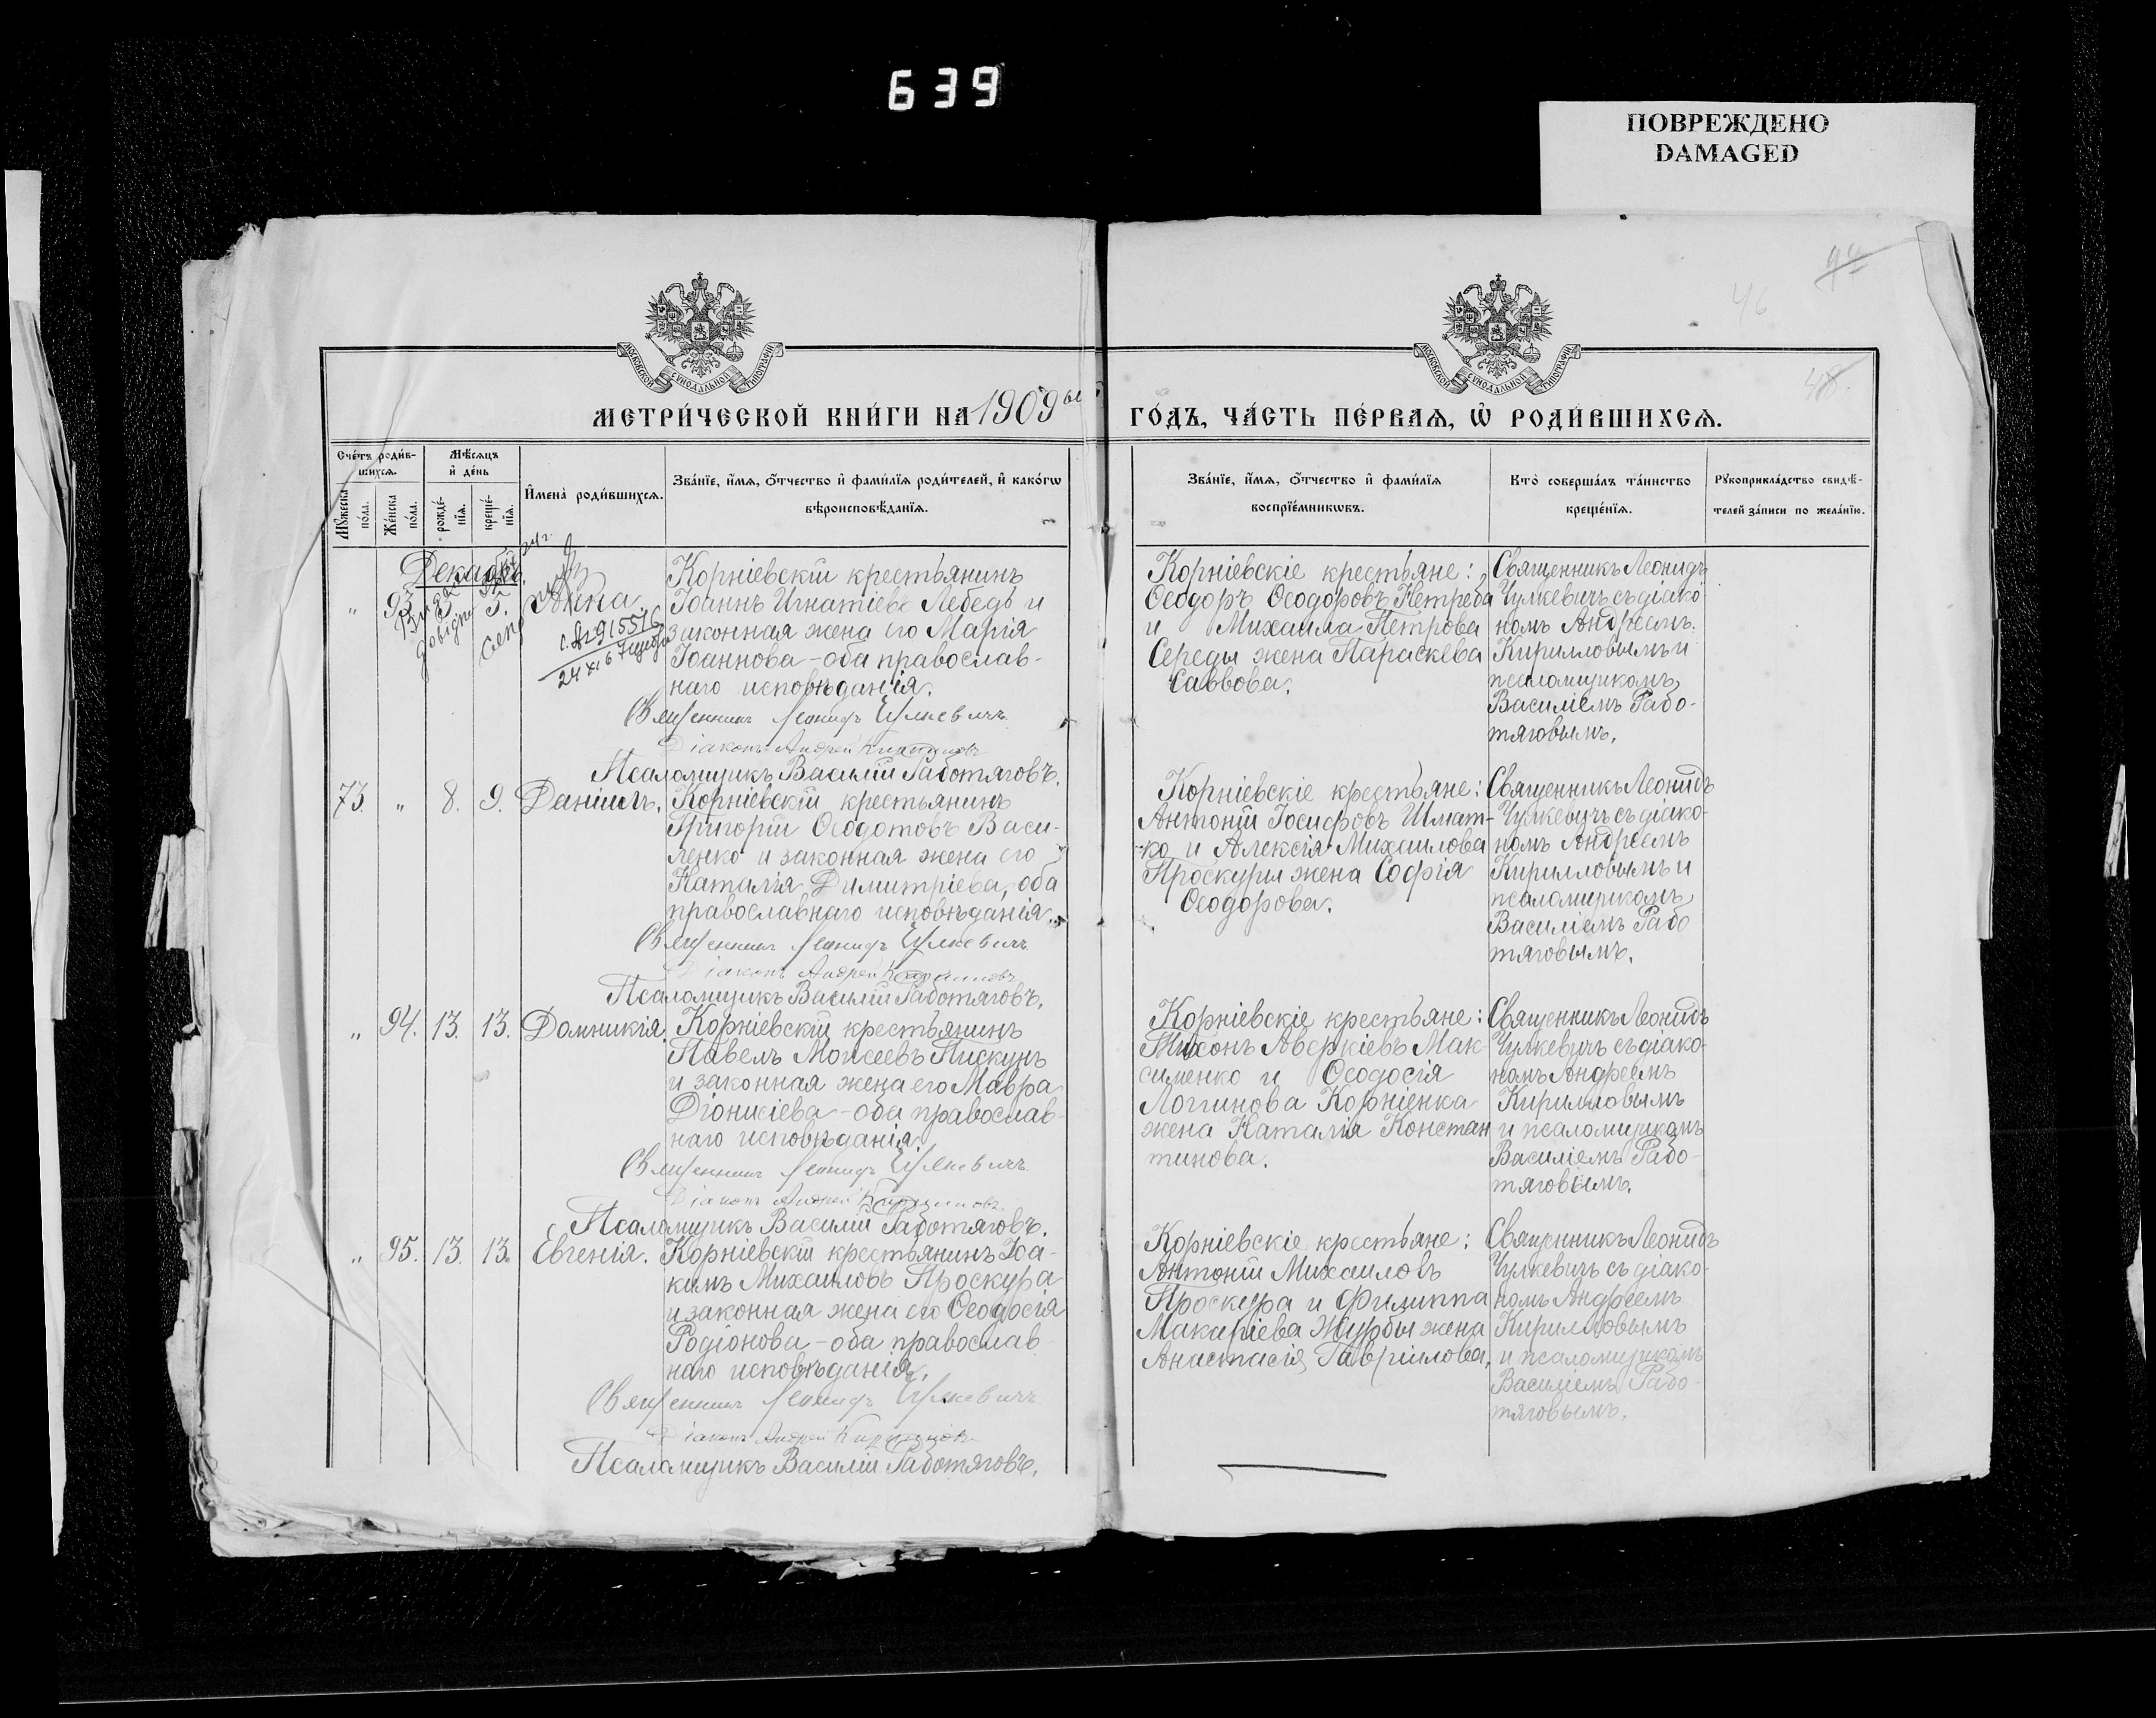 639
ПОВРЕЖДЕНО
DAMAGED
94
46
48.
МОСКОВСКОЙ СѴНОДАЛЬНОЙ ТИПОГРАФІИ
МОСКОВСКОЙ СѴНОДАЛЬНОЙ ТИПОГРАФІИ
МЕТРИ́ЧЕСКОЙ КНИ́ГИ НА 1909ый ГО́ДЪ, ЧА́СТЬ ПЕ́РВАѦ, Ѡ҆ РОДИ́ВШИХСѦ.
Сче́тъ роди́в-
шихсѧ.
Мѣ́сѧцъ
и҆ де́нь
Мꙋ́жеска
по́ла.
Же́нска
по́ла.
рожде́-
нїѧ.
креще́-
нїѧ.
И҆мена̀ роди́вшихсѧ.
Зва́нїе, и҆́мѧ, ѻ҆́тчество и҆ фами́лїѧ роди́телей, и҆ како́гѡ
вѣроисповѣ́данїѧ.
Зва́нїе, и҆́мѧ, ѻ҆́тчество и҆ фами́лїѧ
воспрїе́мникѡвъ.
Кто̀ соверша́лъ та́инство
креще́нїѧ.
Рꙋкоприкла́дство свидѣ́-
телей за́писи по жела́нїю.
Декабрь
„ 93. 5. 5. Анна.
с. № 915516
Корніевскій крестьянинъ
Іоаннъ Игнатіевъ Лебедь и
законная жена его Марія
Іоаннова - оба православ-
наго исповѣданія.
Священникъ Леонидъ Чулкевичъ
Діаконъ Андрей Кирилловъ
Псаломщикъ Василій Работяговъ.
Корніевскіе крестьяне:
Ѳеодоръ Ѳеодоровъ Нетреба
и Михаила Петрова
Середы жена Параскева
Саввова.
Священникъ Леонидъ
Чулкевичъ съ діако
номъ Андреемъ
Кирилловымъ и
псаломщикомъ
Василіемъ Рабо-
тяговымъ.
73. „ 8. 9. Даніилъ.
Корніевскій крестьянинъ
Григорій Ѳеодотовъ Васи-
ленко и законная жена его
Наталія Димитріева, оба
православнаго исповѣданія.
Священникъ Леонидъ Чулкевичъ
Діаконъ Андрей Кирилловъ
Псаломщикъ Василій Работяговъ.
Корніевскіе крестьяне:
Антоній Іосифовъ Шмат-
ко и Алексія Михаилова
Проскуры жена Софія
Ѳеодорова.
Священникъ Леонидъ
Чулкевичъ съ діако-
номъ Андреемъ
Кирилловымъ и
псаломщикомъ
Василіемъ Рабо
тяговымъ.
„ 94. 13. 13. Домникія.
Корніевскій крестьянинъ
Павелъ Моисеевъ Пискунъ
и законная жена его Мавра
Діонисіева - оба православ-
наго исповѣданія
Священникъ Леонидъ Чулкевичъ
Діаконъ Андрей Кирилловъ
Псаломщикъ Василій Работяговъ.
Корніевскіе крестьяне:
Тихонъ Аверкіевъ Мак-
сименко и Ѳеодосія
Логгинова Корніенка
жена Наталія Констан
тинова.
Священникъ Леонидъ
Чулкевичъ съ діако-
номъ Андреемъ
Кирилловымъ
и псаломщикомъ
Василіемъ Рабо-
тяговымъ.
„ 95. 13. 13. Евгенія.
Корніевскій крестьянинъ Іоа-
кимъ Михаиловъ Проскура
и законная жена его Ѳеодосія
Родіонова - оба православ
наго исповѣданія.
Священникъ Леонидъ Чулкевичъ
Діаконъ Андрей Кирилловъ
Псаломщикъ Василій Работяговъ.
Корніевскіе крестьяне:
Антоній Михаиловъ
Проскура и Филиппа
Макаріева Журбы жена
Анастасія Гавріилова.
Священникъ Леонидъ
Чулкевичъ съ діако-
номъ Андреемъ
Кирилловымъ
и псаломщикомъ
Василіемъ Рабо-
тяговымъ.